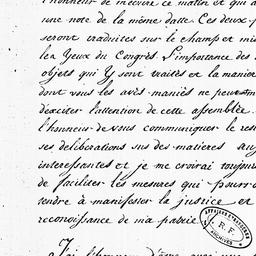 l'honneur de m'ecrire ce matin et qui a
une note de la même datte. Ces deux p
seront traduites sur le champ et mis
les Yeux du Congrès. L'importance des
objets qui Y sont traités et la maniere
dont vous les avés maniés ne peuvent m
d'exciter l'attention de cette assemblée.
l'honneur de vous communiquer le resu
ses deliberations sur des matieres au
interessantes et je me croirai toujours
de faciliter les mesures qui pourro
tendre à manifester la justice et
reconoissance de ma patrie.
J'ai l'honneur d'être avec une
R.F.